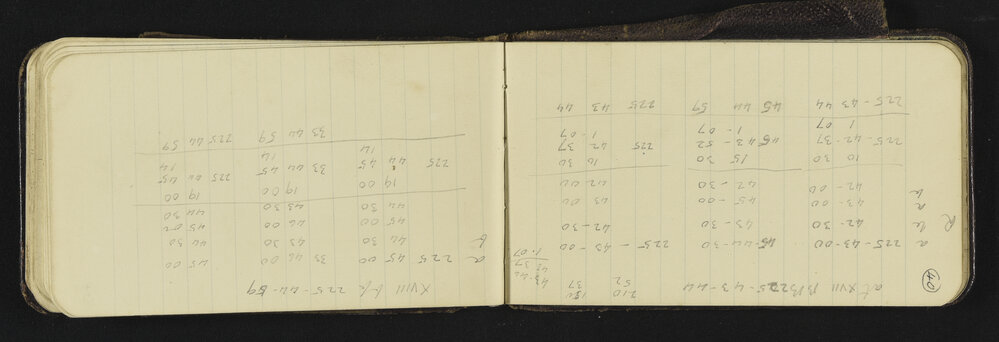 40
at XVII 225-43-44
210 150 43-44
52 37 42 37
1-07
a 225-43-00 45-44-30 225-43-00
b 42-30 43-30 42-30
R
a 43-00 45-00 43 00
b 42-00 42-30 42 00
10 30 15 30 10 30
225-42-37 45-43-52 225 42 37
1 07 1-07 1-07
225-43-44 45 44 59 225 43 44
XVIII 225-44-59
a 225 45 00 33 46 00 45 00
b 44 30 43 30 44 30
45 00 46 00 45 00
44 30 43 30 44 30
19 00 19 00 19 00
225 44 45 33 44 45 225 44 45
14 14 14
33 44 59 225 44 59